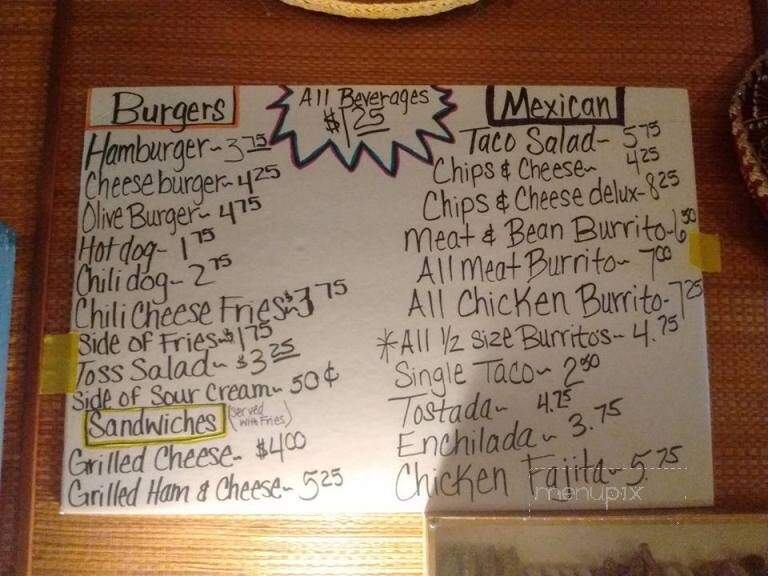 Burgers
Hamburger~ 3.75
Cheeseburger~ 4.25
Olive Burger~ 4.75
Hot dog~ 1.75
Chili dog~ 2.75
Chili Cheese Fries~ $3.75
Side of Fries~ $1.75
Toss Salad~ $3.25
Side of Sour Cream~ 50¢
Sandwiches (served with Fries)
Grilled Cheese~ $4.00
Grilled Ham & Cheese~ 5.25
All Beverages
$1.25
Mexican
Taco Salad~ 5.75
Chips & Cheese~ 4.25
Chips & Cheese delux~ 8.25
Meat & Bean Burrito~ 6.50
All Meat Burrito~ 7.00
All Chicken Burrito~ 7.25
*All 1/2 size Burrito's~ 4.75
Single Taco~ 2.50
Tostada~ 4.25
Enchilada~ 3.75
Chicken Fajita~ 5.75
menupix